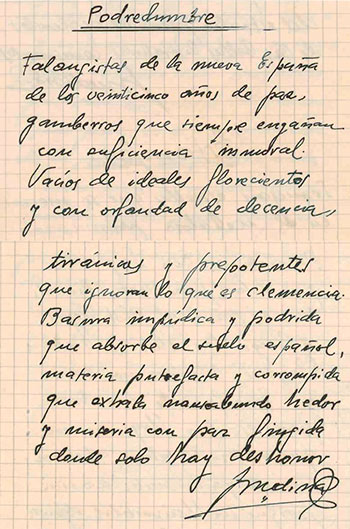 Podredumbre
Falangistas de la nueva España
de los veinticinco años de paz,
gamberros que siempre engañan
con suficiencia inmoral.
Vacios de ideales florecientes
y con orfandad de decencia,
tiránicos y prepotentes
que ignoran lo que es clemencia.
Basura impúdica y podrida
que absorbe el suelo español,
materia putrefacta y corrompida
que exhala nauseabundo hedor
y miseria con paz fingida
donde solo hay deshonor